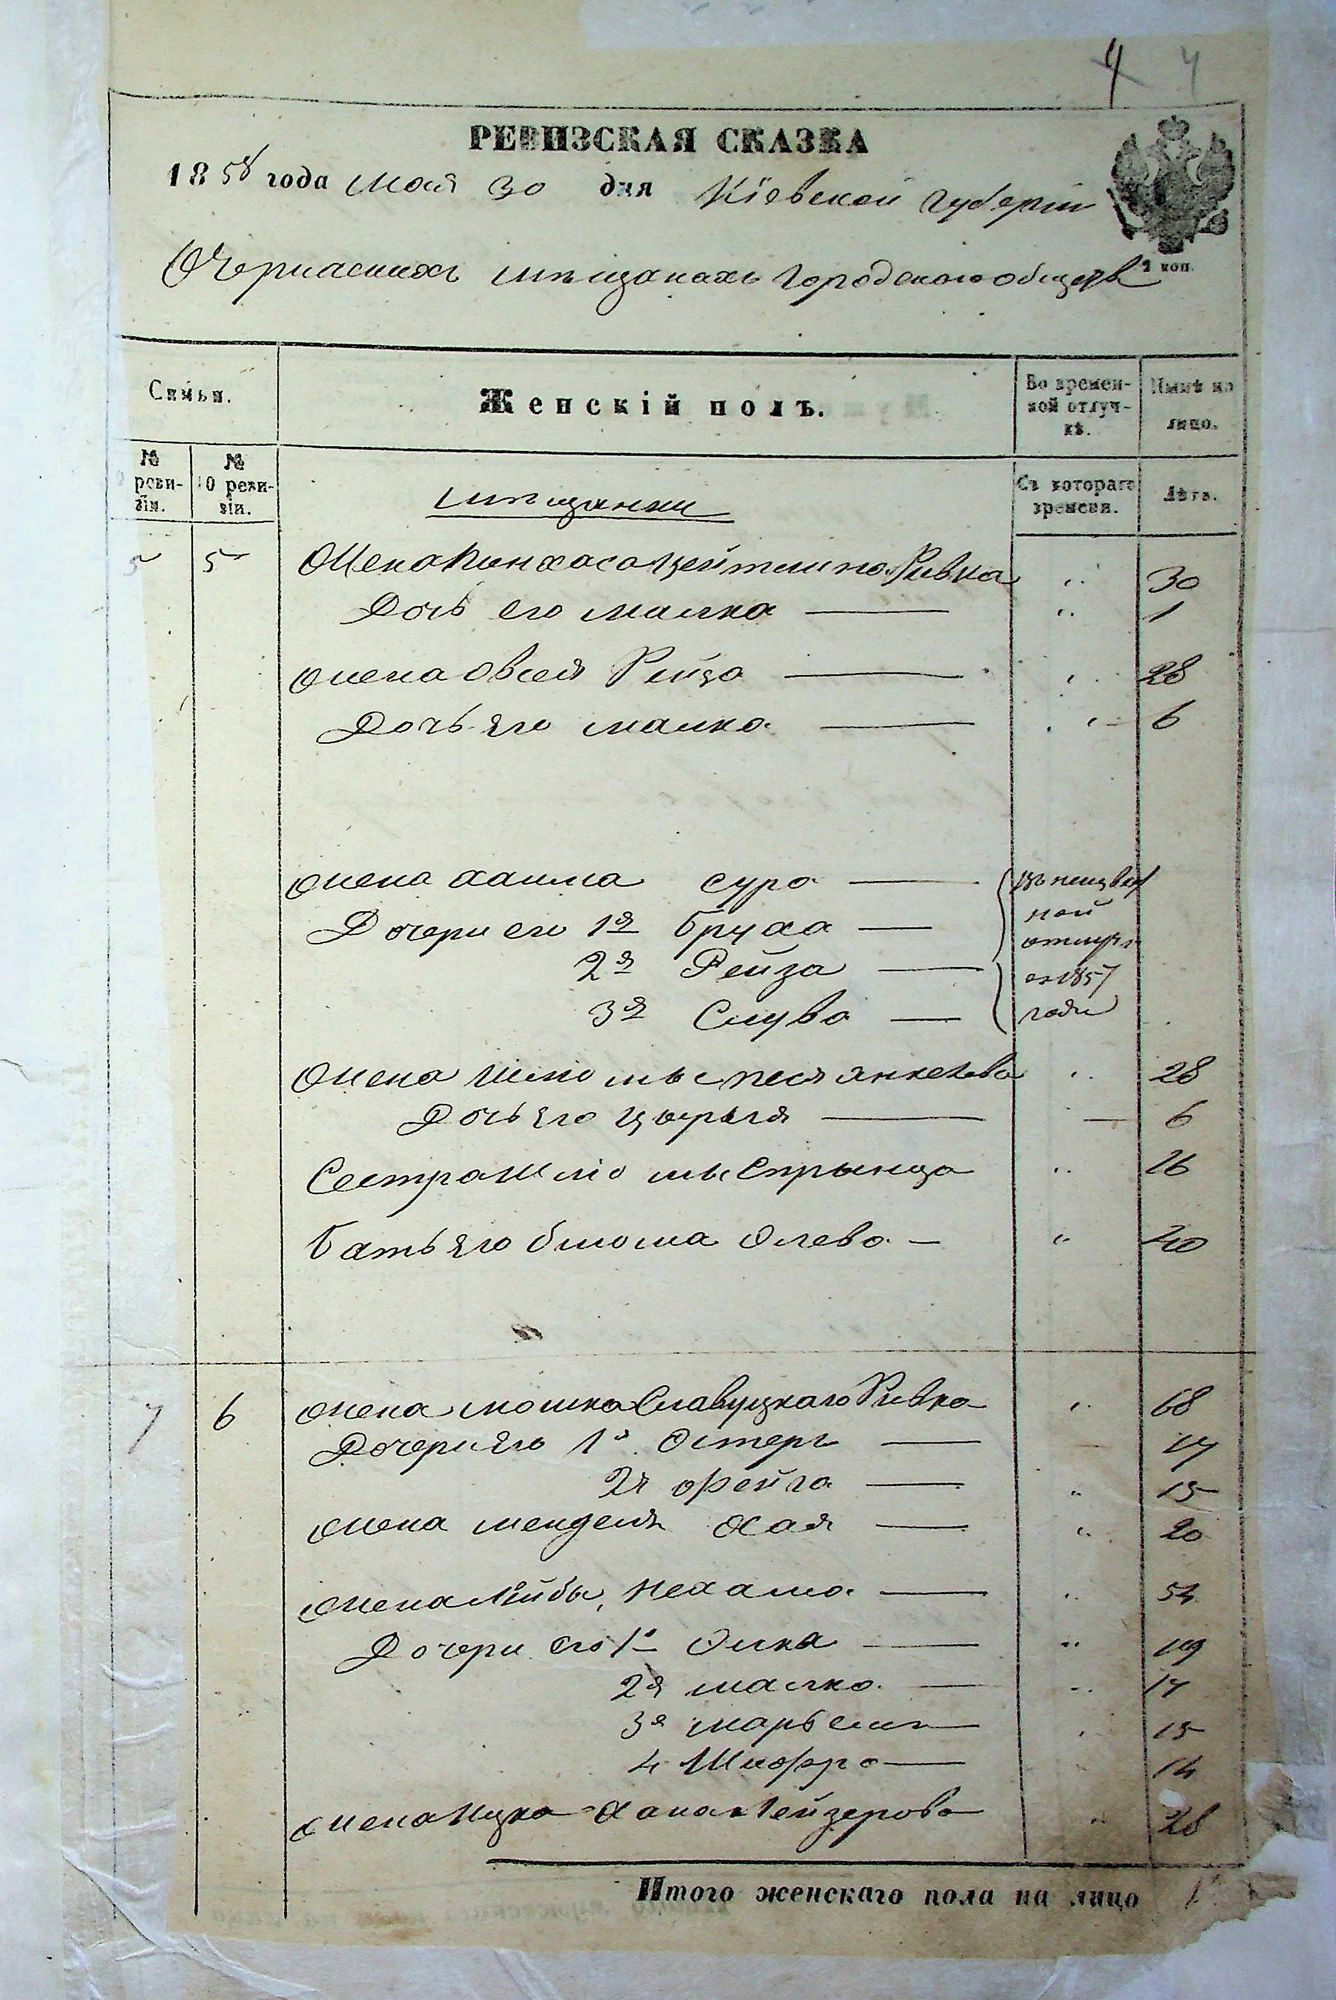 4 4
РЕВИЗСКАЯ СКАЗКА
1858 года Мая 30 дня Кіевской Губерніи
О Черкаскихъ мѣщанахъ Городского общества
2 коп.
Семьи.
Женскій полъ.
Во времен-
ной отлуч-
кѣ.
Нынѣ на
лицо.
№
реви-
зіи.
№
10 реви-
зіи.
Съ котораго
времени.
Лѣта.
мѣщанки
5 5 Жена Пинхаса Цейтлина Ривка " 30
Дочь его Малка " 1
Жена Овсея Рейза " 28
Дочь его Малка " 6
Жена Хаима Сура
Дочери его 1я Бруха
2я Рейза
3я Слува
въ неизвѣст
ной
отлучкѣ
съ 1857
года
Жена Шлiомы Песя Янкелева " 28
Дочь его Цырля — 6
Сестра Шлiомы Спрынца " 26
Мать его Блюма " 40
7 6 Жена Мошка Славуцкаго Ривка " 68
Дочери его 1я Эстеръ — 17
2я Фейга " 15
Жена Менделя Хая " 20
Жена Лейбы, Нехама " 54
Дочери его 1я Элка " 19
2я Малка " 17
3я Марьемъ 15
4 Шифра 14
Жена Ицка Хана Лейзерова " 28
Итого женскаго пола на лицо